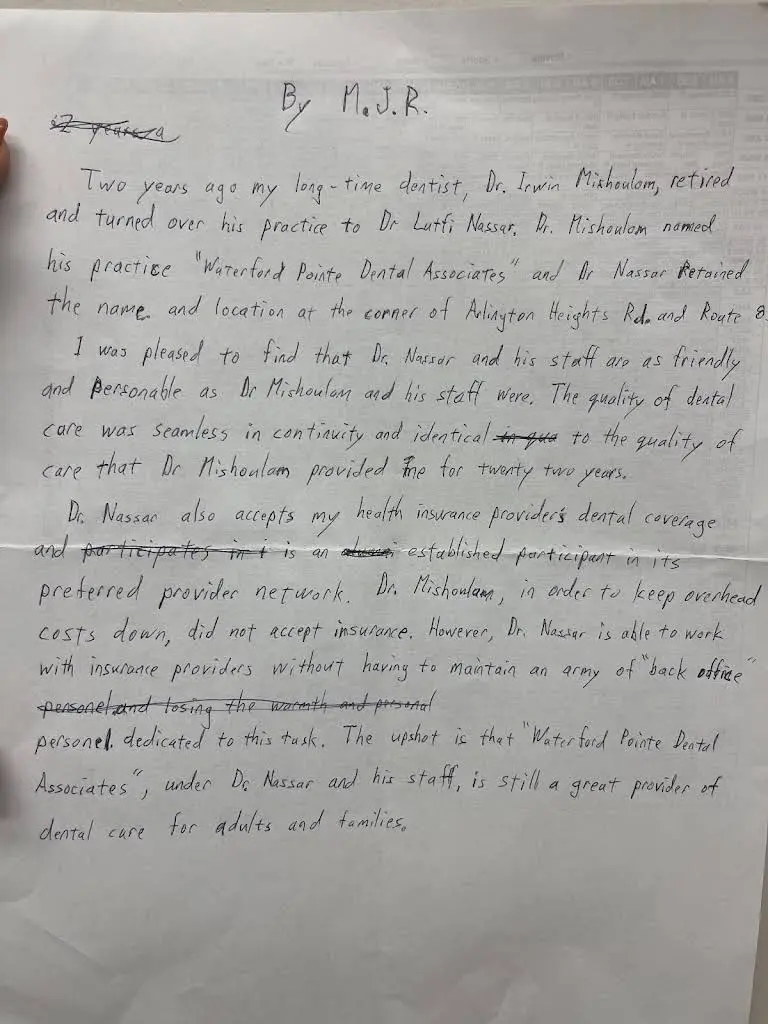 By M.J.R.
Two years ago my long-time dentist, Dr. Irwin Mishoulam, retired
and turned over his practice to Dr Lutfi Nassar. Dr. Mishoulam named
his practice "Waterford Pointe Dental Associates" and Dr Nassar Retained
the name and location at the corner of Arlington Heights Rd. and Route 8
I was pleased to find that Dr. Nassar and his staff are as friendly
and personable as Dr Mishoulam and his staff were. The quality of dental
care was seamless in continuity and identical in qua to the quality of
care that Dr Mishoulam provided me for twenty two years.
Dr. Nassar also accepts my health insurance provider's dental coverage
and participates in t is an established participant in its
preferred provider network. Dr. Mishoulam, in order to keep overhead
costs down, did not accept insurance. However, Dr. Nassar is able to work
with insurance providers without having to maintain an army of "back office"
personel and losing the warmth and personal
personel dedicated to this task. The upshot is that "Waterford Pointe Dental
Associates", under Dr Nassar and his staff, is still a great provider of
dental care for adults and families.